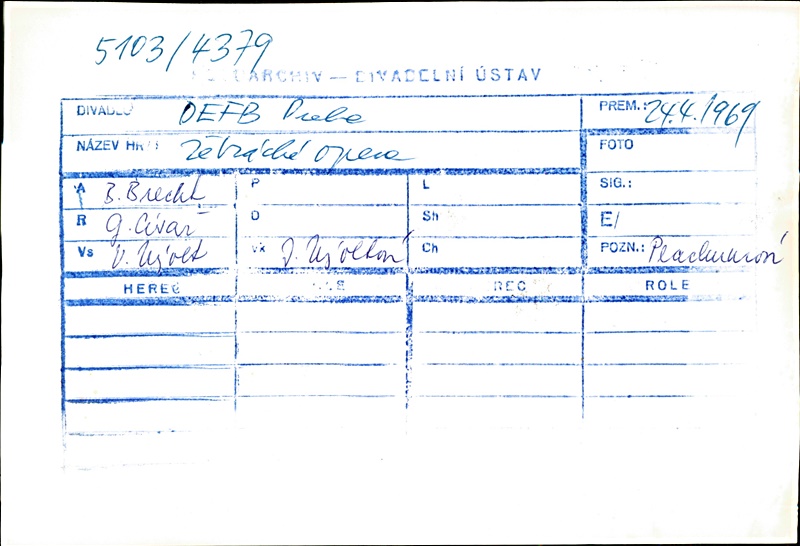 5103/4379
ARCHIV — DIVADELNÍ ÚSTAV
DIVADLO DEFB Praha PREM.: 24.4.1969
NÁZEV HRY Žebrácká opera FOTO
A B. Brecht P L SIG.:
R G. Císař O Sh E/
Vs V. Nývlt Vk J. Nývltová Ch POZN.:
HEREC ROLE